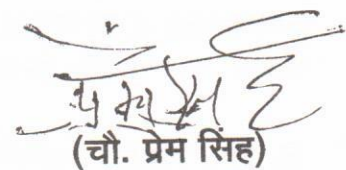 (चौ. प्रेम सिंह)